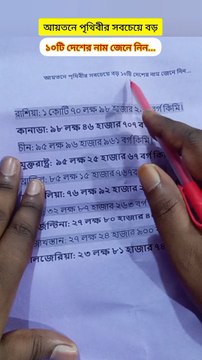 আয়তনে পৃথিবীর সবচেয়ে বড়
১০টি দেশের নাম জেনে নিন...
আয়তনে পৃথিবীর সবচেয়ে বড় ১০টি দেশের নাম জেনে নিন...
রাশিয়া: ১ কোটি ৭০ লক্ষ ৯৮ হাজার বর্গ কিমি।
কানাডা: ৯৮ লক্ষ ৪৬ হাজার ৭০৭ বর্গ
চীন: ৯৫ লক্ষ ৯৬ হাজার ৯৬১ বর্গ কিমি।
যুক্তরাষ্ট্র: ৯৫ লক্ষ ২৫ হাজার ৬৭ বর্গ কি
৮৫ লক্ষ ১৫ হাজার ৭৬৭ ব
লিয়া: ৭৬ লক্ষ ৯২ হাজার
৩২ লক্ষ ৮৭ হাজার ২৬৩ বর্গ
র্জেন্টিনা: ২৭ লক্ষ ৮০ হাজার ৪
যখস্তান: ২৭ লক্ষ ২৪ হাজার ৯০০
লজেরিয়া: ২৩ লক্ষ ৮১ হাজার ৭৪